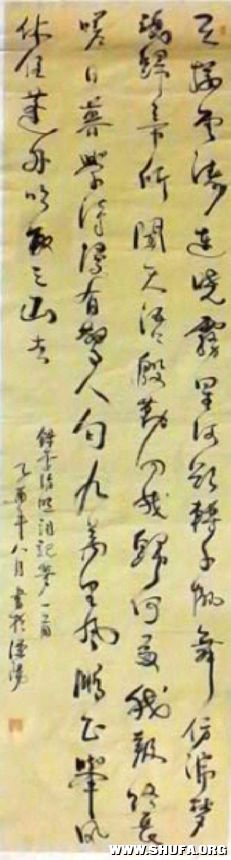 天接雲濤連曉霧星河欲轉千帆舞仿彿夢
魂歸帝所聞天語殷勤問我歸何處我報路長
嗟日暮學詩謾有驚人句九萬里風鵬正舉風
休住蓬舟吹取三山去
錄李清照詞記夢一首
乙酉年八月書於
WWW.SHUFA.ORG